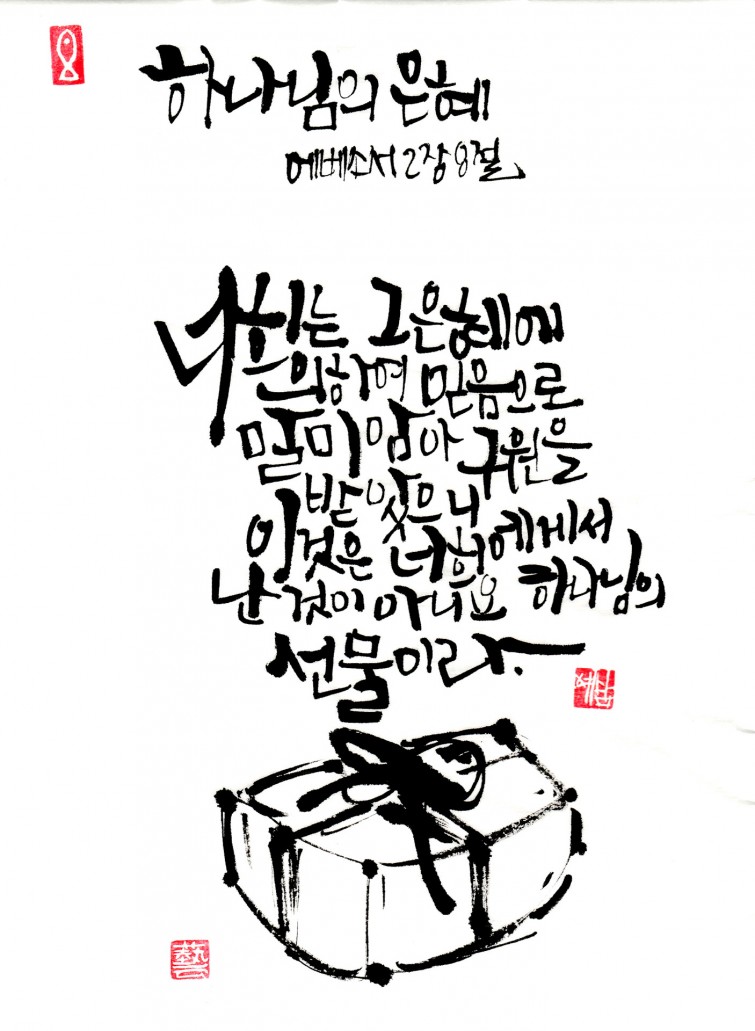 하나님의 은혜
에베소서 2장 8절
너희는 그 은혜에
의하여 믿음으로
말미암아 구원을
받았으니
이것은 너희에게서
난 것이 아니요 하나님의
선물이라.
예담
藝